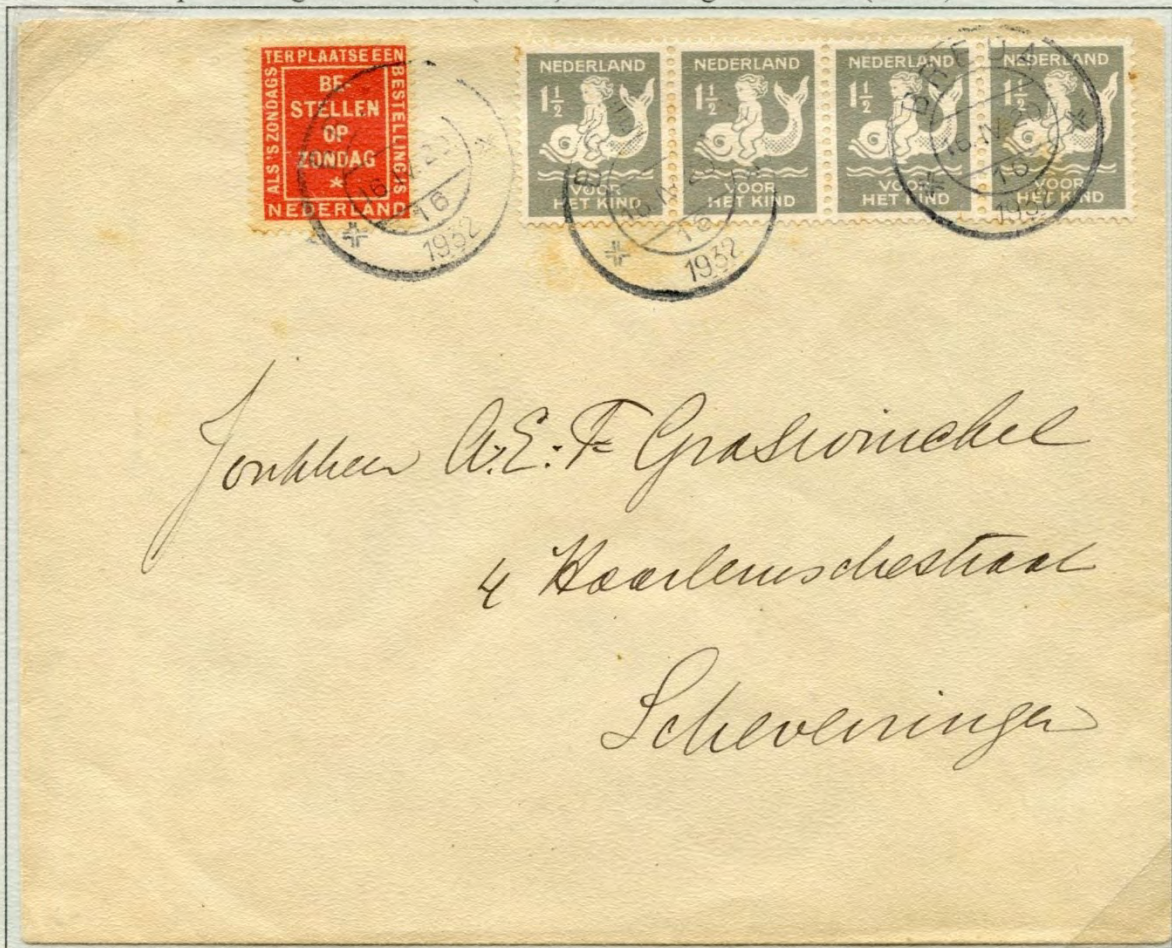 TER PLAATSE EEN
BESTELLING IS
ALS 'S ZONDAGS
BE-
STELLEN
OP
ZONDAG
*
NEDERLAND
NEDERLAND
1½
VOOR
HET KIND
NEDERLAND
1½
VOOR
HET KIND
NEDERLAND
1½
VOOR
HET KIND
NEDERLAND
1½
VOOR
HET KIND
16.IV.20
16
1932
16
1932
BREDA
16.IV.20
16
1932
Jonkheer A.E.F. Graswinckel
4 Haarlemschestraat
Scheveningen